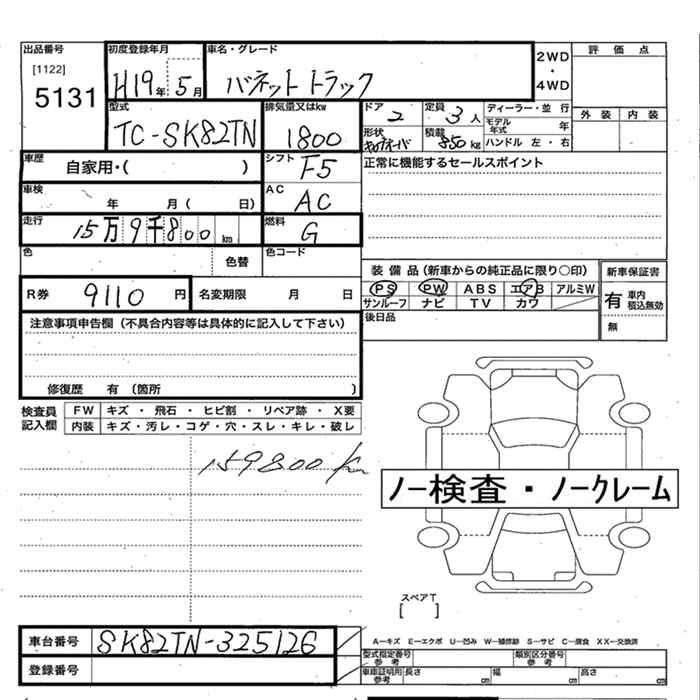 出品番号 初度登録年月 車名・グレード 2WD 評 価 点
[1122] ・
5131 H19年 5月 バネット トラック 4WD
外 装 内 装
型式 排気量又はkw ドア 定員 ディーラー・並 行
TC-SK82TN 1800 2 3人 モデル年式 年
形状 積載 850kg ハンドル 左 ・ 右
車歴 自家用・( ) シフト F5 正常に機能するセールスポイント
車検 年 月( 日) AC AC
走行 15万9千800km 燃料 G
色 色替 色コード
装 備 品 (新車からの純正品に限り○印) 新車保証書
R券 9110円 名変期限 月 日 PS PW ABS エアB アルミW 有 車内積込無効
サンルーフ ナビ TV カワ
注意事項申告欄(不具合内容等は具体的に記入して下さい) 後日品 無
修復歴 有 (箇所 )
検査員記入欄 FW キズ ・ 飛石 ・ ヒビ割 ・ リペア跡 ・ X要
内装 キズ・汚レ・コゲ・穴・スレ・キレ・破レ
159800 km
ノー検査・ノークレーム
スペアT
[ ]
車台番号 SK82TN-325126 A―キズ E―エクボ U―凹み W―補修跡 S―サビ C―腐食 XX―交換済
登録番号 型式指定番号 参考 類別区分番号 参考
車庫証明用 参考 長さ cm 幅 cm 高さ cm